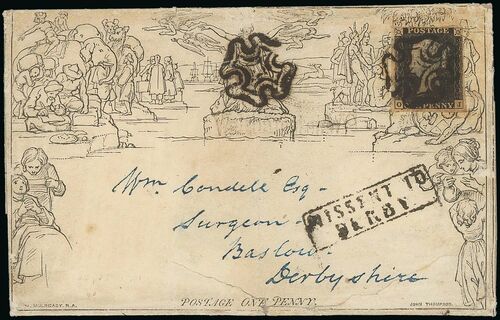 POSTAGE
O ONE PENNY J
Wm Condell Esq.
Surgeon
MISSENT TO
DERBY
Baslow
Derbyshire
W. MULREADY, R.A.
POSTAGE ONE PENNY.
JOHN THOMPSON.